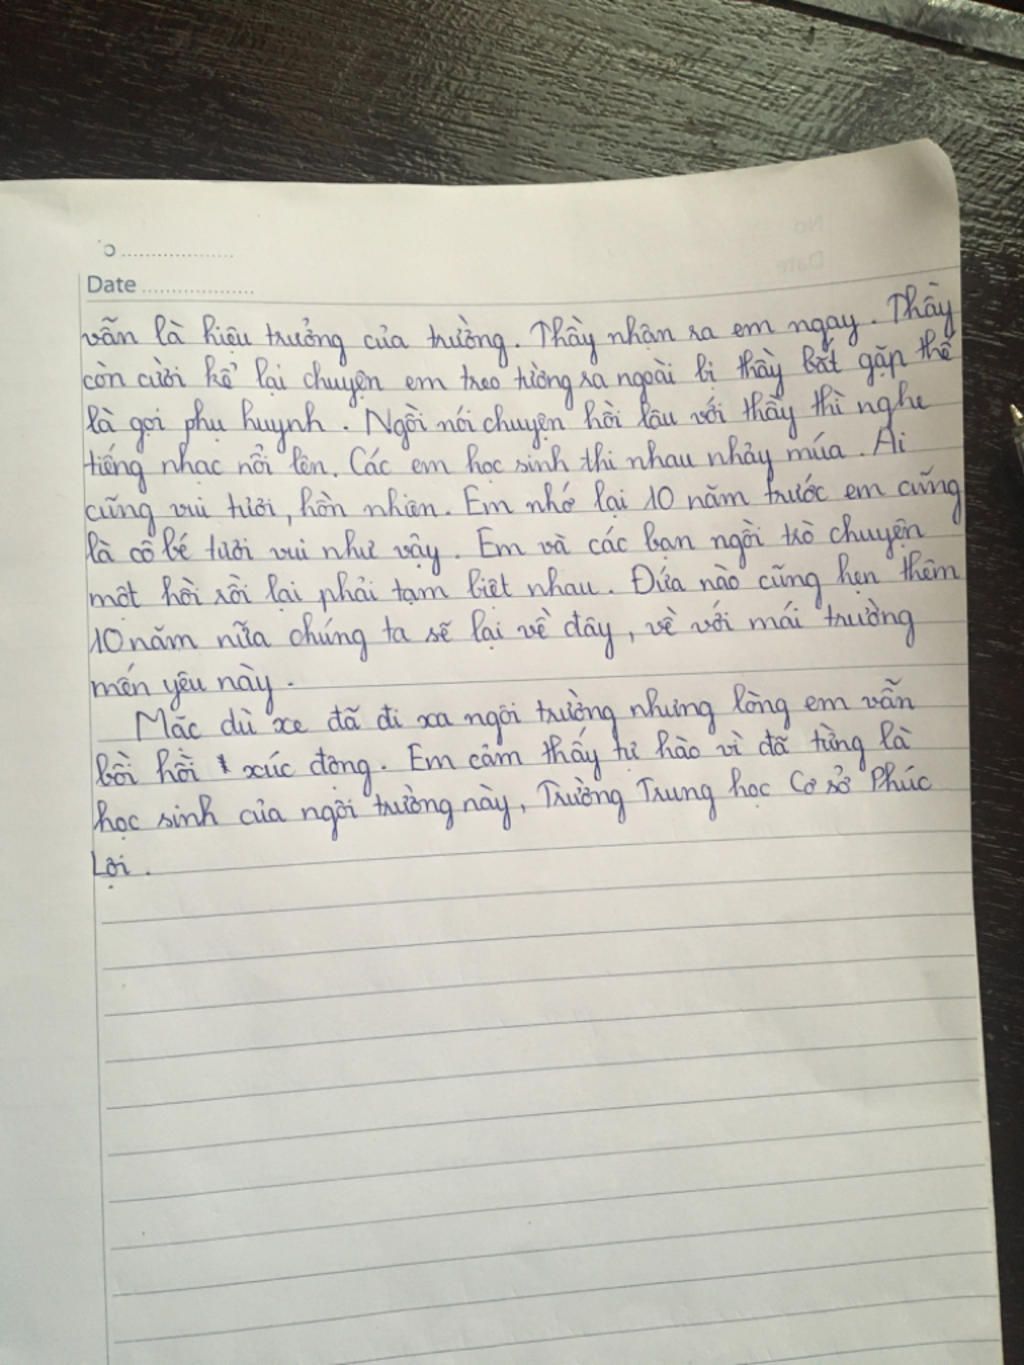 Date
vẫn là hiệu trưởng của trường. Thầy nhận ra em ngay. Thầy
còn cười kể lại chuyện em treo tường ra ngoài bị thầy bắt gặp thế
là gọi phụ huynh. Ngồi nói chuyện hồi lâu với thầy thì nghe
tiếng nhạc nổi lên. Các em học sinh thi nhau nhảy múa. Ai
cũng vui tươi, hồn nhiên. Em nhớ lại 10 năm trước em cũng
là cô bé tươi vui như vậy. Em và các bạn ngồi trò chuyện
một hồi rồi lại phải tạm biệt nhau. Đứa nào cũng hẹn thêm
10 năm nữa chúng ta sẽ lại về đây, về với mái trường
mến yêu này.
Mặc dù xe đã đi xa ngôi trường nhưng lòng em vẫn
bồi hồi xúc động. Em cảm thấy tự hào vì đã từng là
học sinh của ngôi trường này, Trường Trung học Cơ sở Phúc
Lợi.